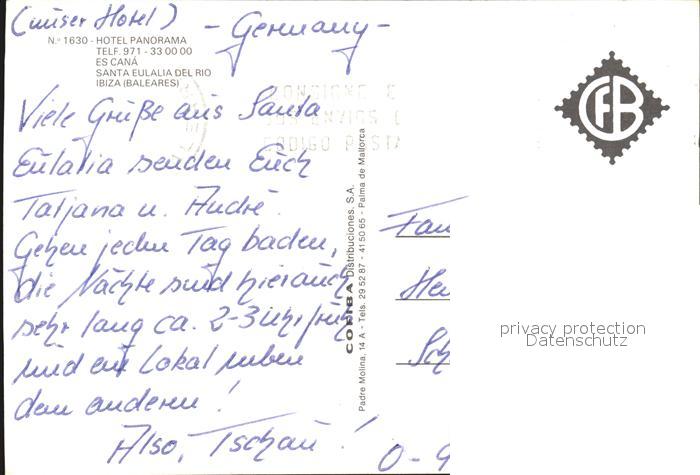 (unser Hotel)
- Germany -
N.º 1630 - HOTEL PANORAMA
TELF. 971 - 33 00 00
ES CANÁ
SANTA EULALIA DEL RIO
IBIZA (BALEARES)
CONSIGNE
SUS ENVIOS
CODIGO POSTA
CFB
Viele Grüße aus Santa
Eulalia senden Euch
Tatjana u. André.
Gehen jeden Tag baden,
die Nächte sind hier auch
sehr lang ca. 2-3 Uhr früh
und ein Lokal neben
dem anderen!
Also, Tschau!
COMBA Distribuciones, S.A.
Padre Molina, 14 A - Tels. 29 52 87 - 41 50 65 - Palma de Mallorca
Fam
He
Sch
O-9
privacy protection
Datenschutz